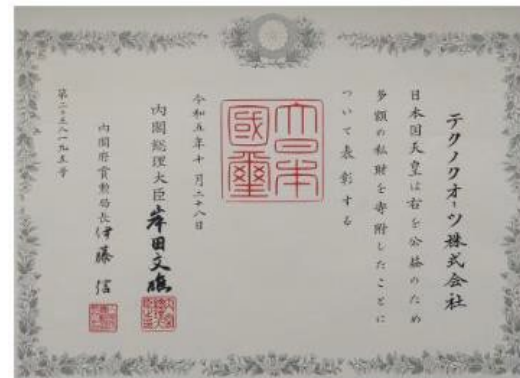 テクノクオーツ株式会社
日本国天皇は右を公益のため
多額の私財を寄附したことに
ついて表彰する
大日本
國璽
令和五年十月二十八日
内閣総理大臣 岸田文雄
内閣府賞勲局長 伊藤信